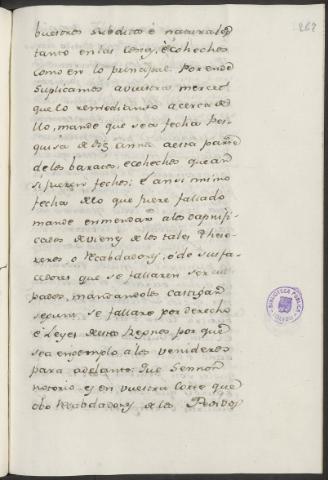 262
buestros subditos é naturales
tanto en las cosas, é cohechos
como en lo principal. Por ende
Suplicamos a vuestra merced
que lo remediando acerca de
llo, mande que sea fecha Pes-
quisa de diez annos a esta parte
de los baratos, e cohechos que an
si fueron fechos; e ansi mismo
fecha de lo que fuere fallado
mande enmendar a los dapnifi-
cados de vienes de los tales Theso-
reros, o Recabdadores, o de sus fa-
cedores que se fallaren ser cul-
pados, mandandoles castigar
segun se fallare por derecho
é Leyes destos Regnos por que
sea enxemplo a los venideros
para adelante: Que Sennor
notorio es en vuestra Corte que
obo Recabdadores de los Pedidos
BIBLIOTECA PUBLICA
TOLEDO